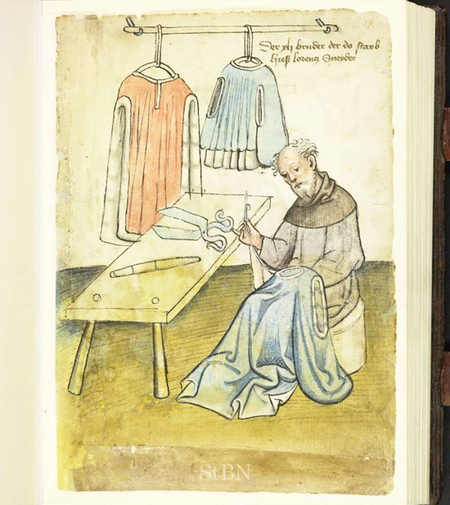 Der xlj bruder der do starb
hieß lorentz Sneyder
StBN